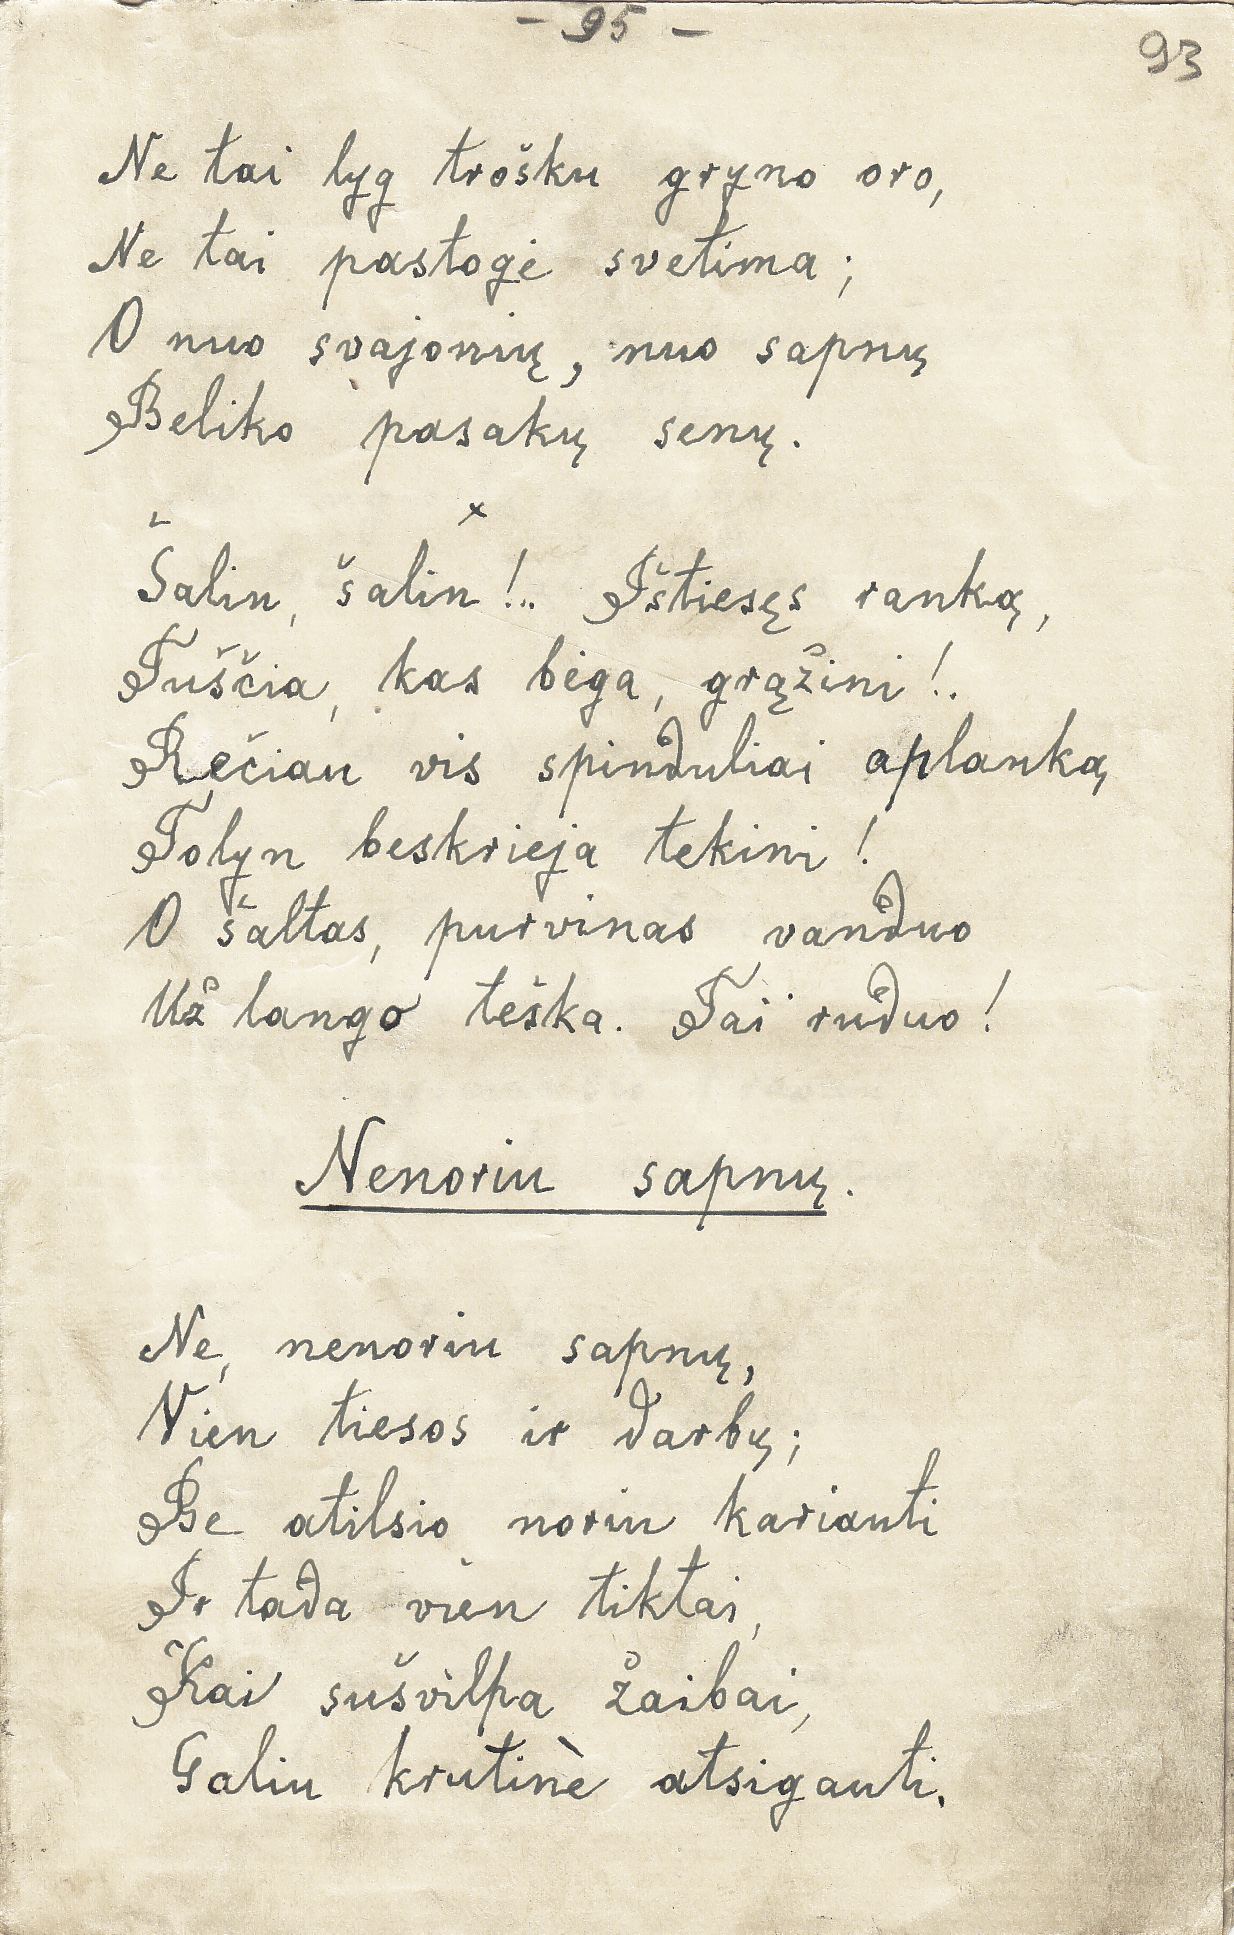 - 95 -
93
Ne tai lyg trošku gryno oro,
Ne tai pastogė svetima;
O nuo svajonių, nuo sapnų
Beliko pasakų senų.
x
Šalin, šalin!.. Ištiesęs ranką,
Tuščia, kas bėga, grąžini!..
Rečiau vis spinduliai aplanką
Tolyn beskrieja tekini!
O šaltas, purvinas vanduo
Už lango teška. Tai ruduo!
Nenoriu sapnų.
Ne, nenoriu sapnų,
Vien tiesos ir darbų;
Be atilsio noriu kariauti
Ir tada vien tiktai,
Kai sušvilpa žaibai,
Galiu krutinė atsigauti.